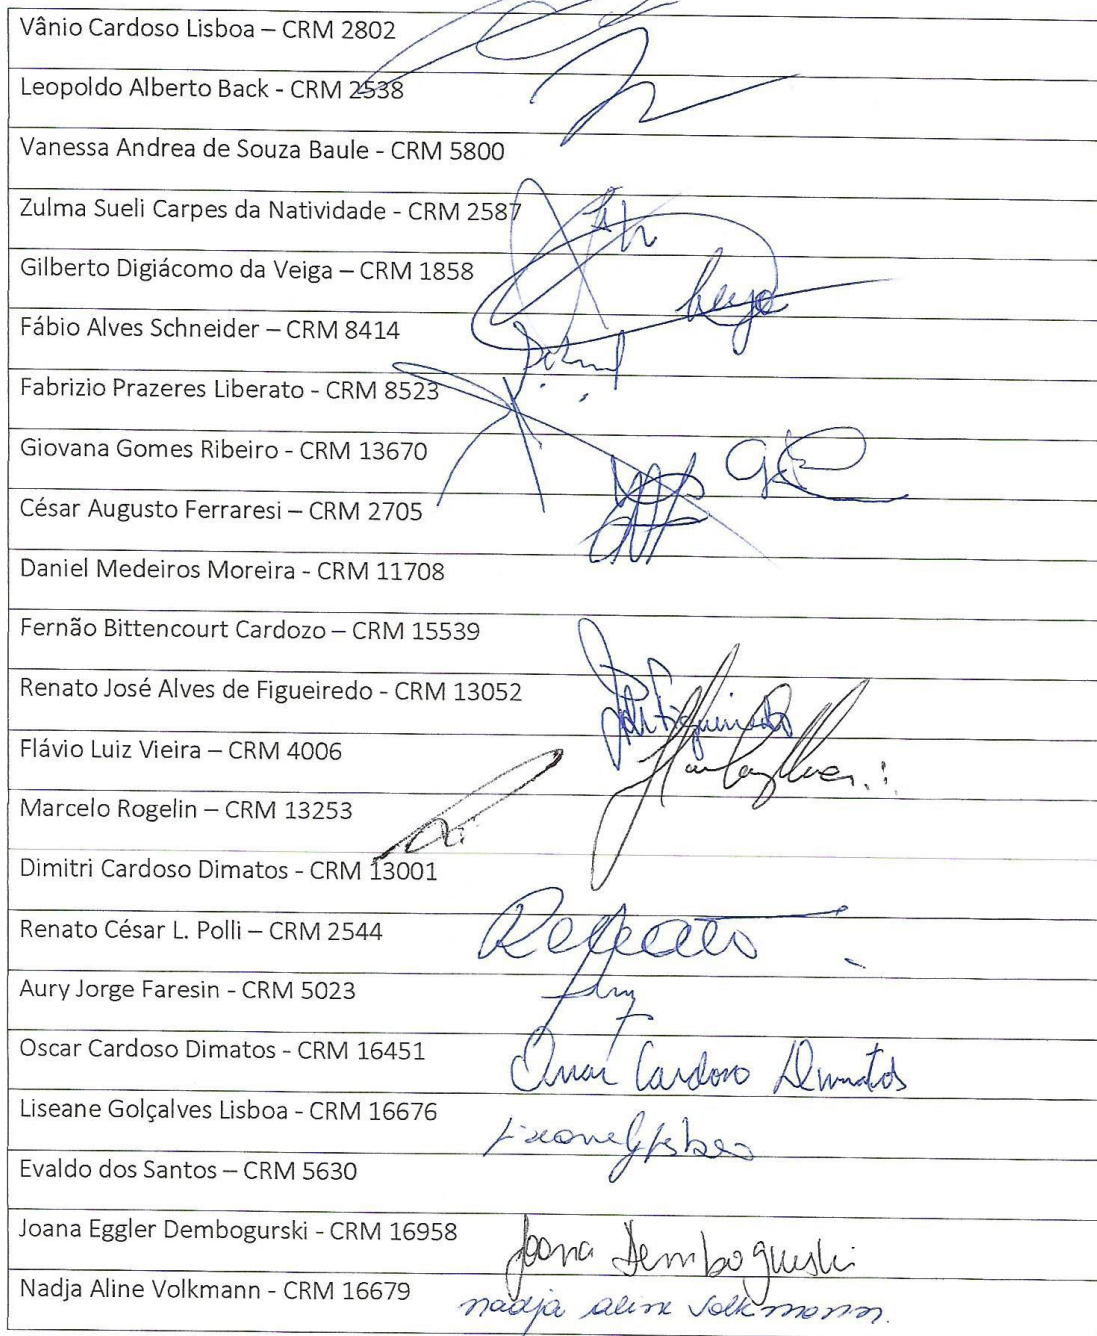 Vânio Cardoso Lisboa – CRM 2802
Leopoldo Alberto Back - CRM 2538
Vanessa Andrea de Souza Baule - CRM 5800
Zulma Sueli Carpes da Natividade - CRM 2587
Gilberto Digiácomo da Veiga – CRM 1858
Fábio Alves Schneider – CRM 8414
Fabrizio Prazeres Liberato - CRM 8523
Giovana Gomes Ribeiro - CRM 13670
César Augusto Ferraresi – CRM 2705
Daniel Medeiros Moreira - CRM 11708
Fernão Bittencourt Cardozo – CRM 15539
Renato José Alves de Figueiredo - CRM 13052
Flávio Luiz Vieira – CRM 4006
Marcelo Rogelin – CRM 13253
Dimitri Cardoso Dimatos - CRM 13001
Renato César L. Polli – CRM 2544 Renato
Aury Jorge Faresin - CRM 5023
Oscar Cardoso Dimatos - CRM 16451 Cardoso Dimatos
Liseane Golçalves Lisboa - CRM 16676
Evaldo dos Santos – CRM 5630
Joana Eggler Dembogurski - CRM 16958 Joana Dembogurski
Nadja Aline Volkmann - CRM 16679 nadja aline volkmann.